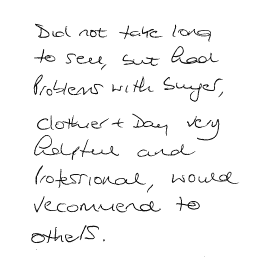 Did not take long
to sell, but had
Problems with buyer,
Clothier + Day very
helpful and
Professional, would
recommend to
others.